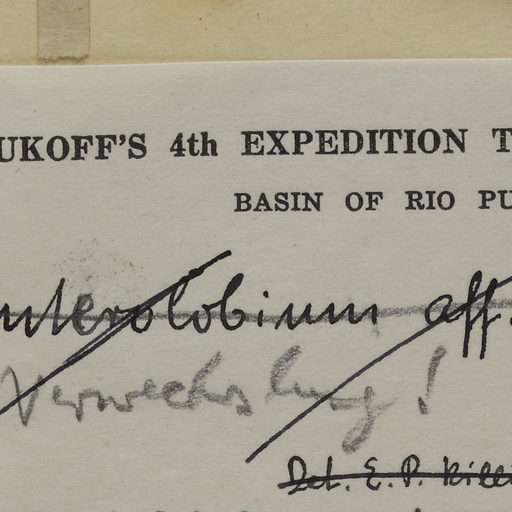 UKOFF'S 4th EXPEDITION T
BASIN OF RIO PU
nterolobium aff.
Verwechslung!
Det. E. P. Killi